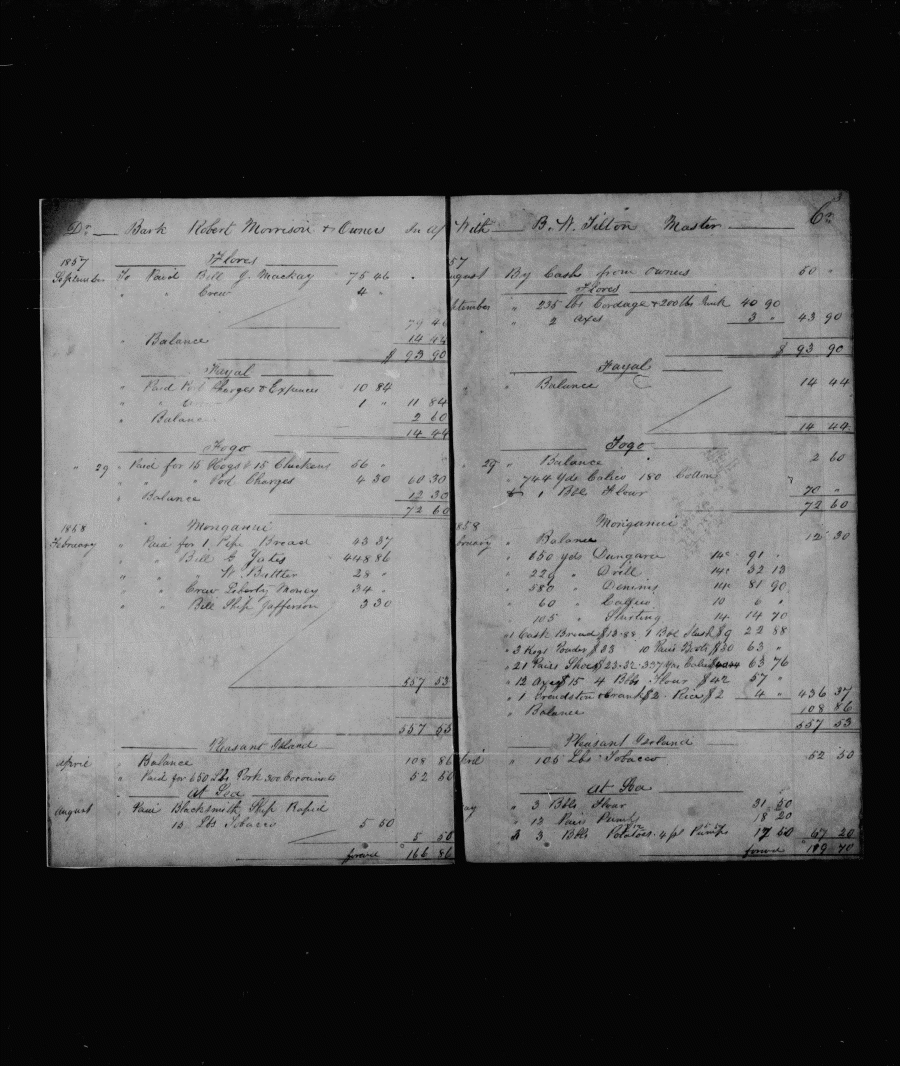 Dr Bark Robert Morrison & Owners In a/c
1857 Flores
September To Paid Bill J. Mackay 75 46
" " Crew 4 "
79 46
" Balance 14 44
$ 93 90
Fayal
" Paid Port Charges & Expences 10 84
" " 1 " 11 84
" Balance 2 60
14 44
Fogo
" 29 " Paid for 15 Hogs & 15 Chickens 56 "
" " Port Charges 4 30 60 30
" Balance 12 30
72 60
1858 " Monganui
February " Paid for 1 Pipe Bread 43 37
" " Bill G Yates 448 86
" " " W. Buttler 28 "
" " Crew Liberty Money 34 "
" " Bill Ship Jafferson 3 30
557 53
557 53
Pleasant Island
April " Balance 108 86
" Paid for 650 Lbs Pork 300 Cocoanuts 52 50
At Sea
August " Paid Blacksmith Ship Rapid
15 Lbs Tobacco 5 50
5 50
forward " 166 86
With B. W. Tilton Master Cr
57
ugust By Cash from Owners 50 "
Flores
ptember " 235 lbs Cordage & 200 lbs Junk 40 90
" " 2 Axes 3 " 43 90
$ 93 90
Fayal
" " Balance 14 44
14 44
Fogo
" 29 " Balance 2 60
" 744 yds Calico 180 Cotton
& 1 Bbl Flour 70 "
72 60
858 Monganui
bruary " Balance 12 30
" 650 yds Dungaree 14c 91 "
" 229 " Drill 14c 32 13
" 580 " Dennims 14c 81 90
" 60 " Callico 10 6 "
" 105 " Shirting 14 14 70
" 1 Cask Bread $13.88 1 Bbl Slush $9 22 88
" 3 Kegs Powder $33 10 Pairs Boots $30 63 "
" 21 Pairs Shoes $23.32 337 yds Calico 63 76
" 12 Axes $15 4 Bbls Flour $42 57 "
" 1 Grindston & crank $2. Rice $2 4 " 436 37
" Balance 108 86
557 53
Pleasant Island
pril " 105 Lbs Tobacco 52 50
At Sea
" 3 Bbls Flour 31 50
" 13 Pairs Pumps 18 20
& 3 Bbls Potatoes. 4 pr Pumps 17 50 67 20
forward " 119 70